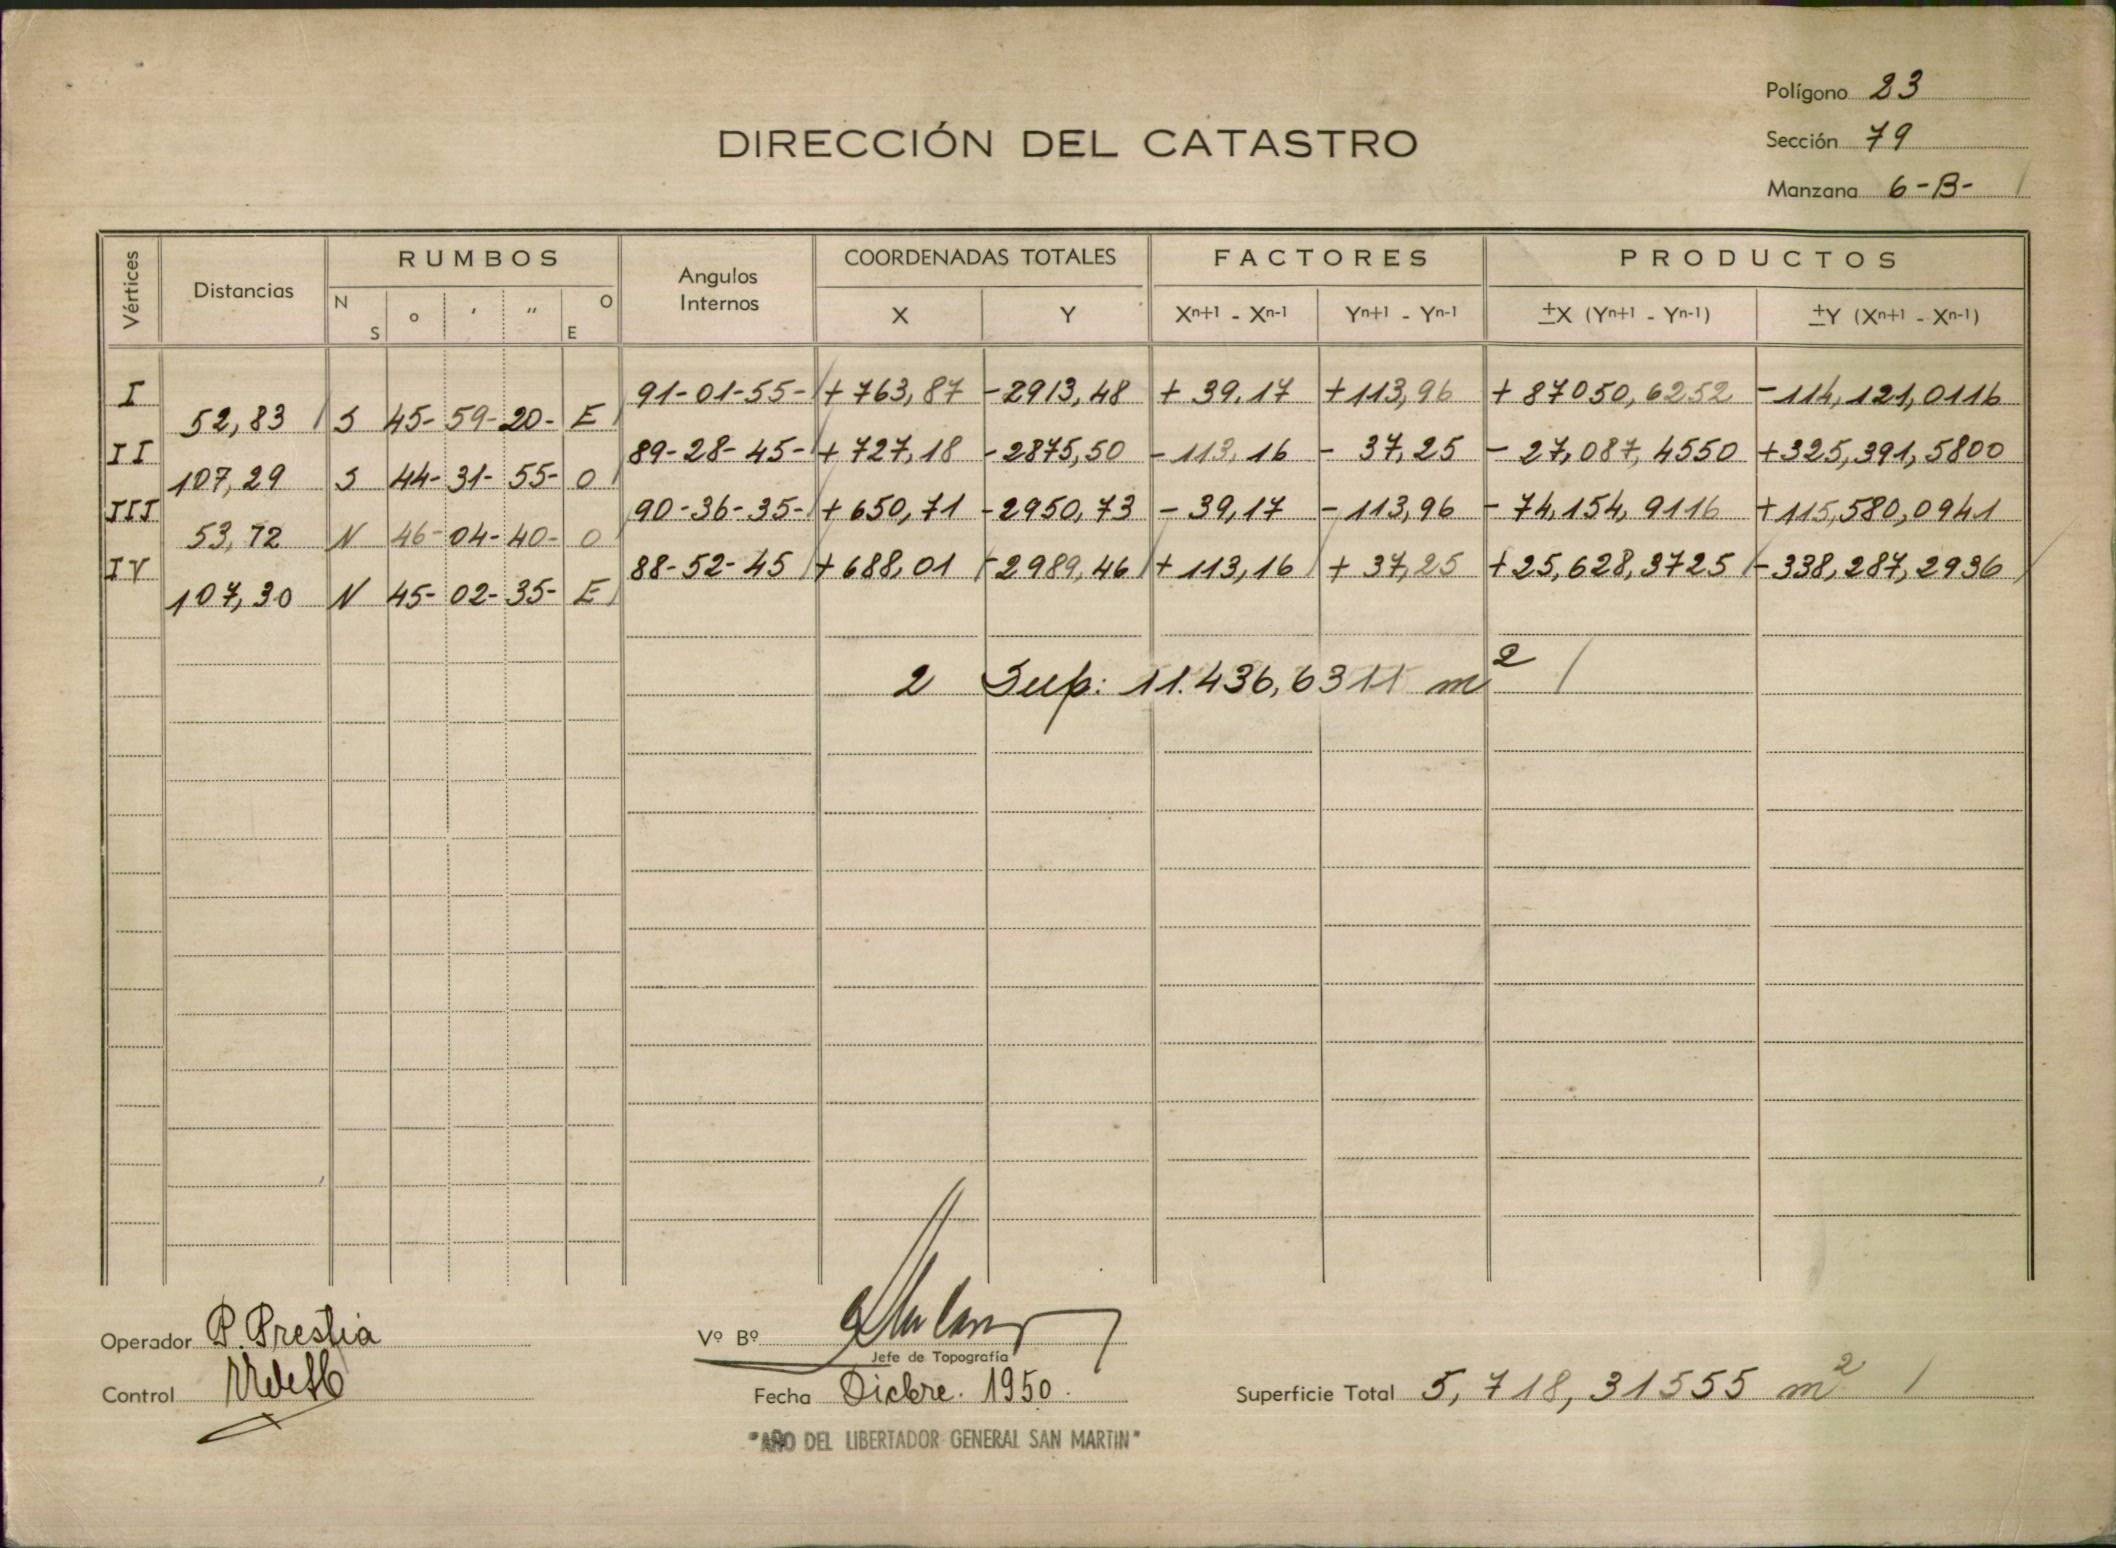 Polígono 23
DIRECCIÓN DEL CATASTRO
Sección 79
Manzana 6-B-
Vértices Distancias RUMBOS Angulos Internos COORDENADAS TOTALES FACTORES PRODUCTOS
N S ° ' " O E X Y Xn+1 - Xn-1 Yn+1 - Yn-1 ±X (Yn+1 - Yn-1) ±Y (Xn+1 - Xn-1)
I 91-01-55- +763,87 -2913,48 +39,17 +113,96 +87050,6252 -114,121,0116
52,83 S 45-59-20- E
II 89-28-45- +727,18 -2875,50 -113,16 -37,25 -27,087,4550 +325,391,5800
107,29 S 44-31-55- O
III 90-36-35- +650,71 -2950,73 -39,17 -113,96 -74,154,9116 +115,580,0941
53,72 N 46-04-40- O
IV 88-52-45 +688,01 -2989,46 +113,16 +37,25 +25,628,3725 -338,287,2936
107,30 N 45-02-35- E
2 Sup: 11.436,6311 m²
Operador P. Prestia
Vº Bº
Jefe de Topografía
Control
Fecha Dicbre. 1950.
Superficie Total 5,718,31555 m²
"AÑO DEL LIBERTADOR GENERAL SAN MARTIN"